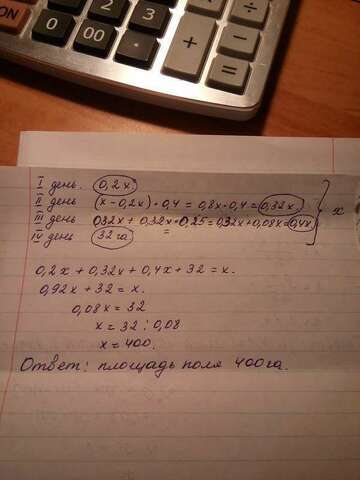 ON
0
00
2
3
.
+
÷
-
=
I день. 0,2x.
II день (x-0,2x)·0,4 = 0,8x·0,4 = 0,32x.
III день 0,32x + 0,32x·0,25 = 0,32x + 0,08x = 0,4x
IV день 32 га
x
=
0,2x + 0,32x + 0,4x + 32 = x.
0,92x + 32 = x.
0,08x = 32
x = 32 : 0,08
x = 400.
Ответ: площадь поля 400 га.